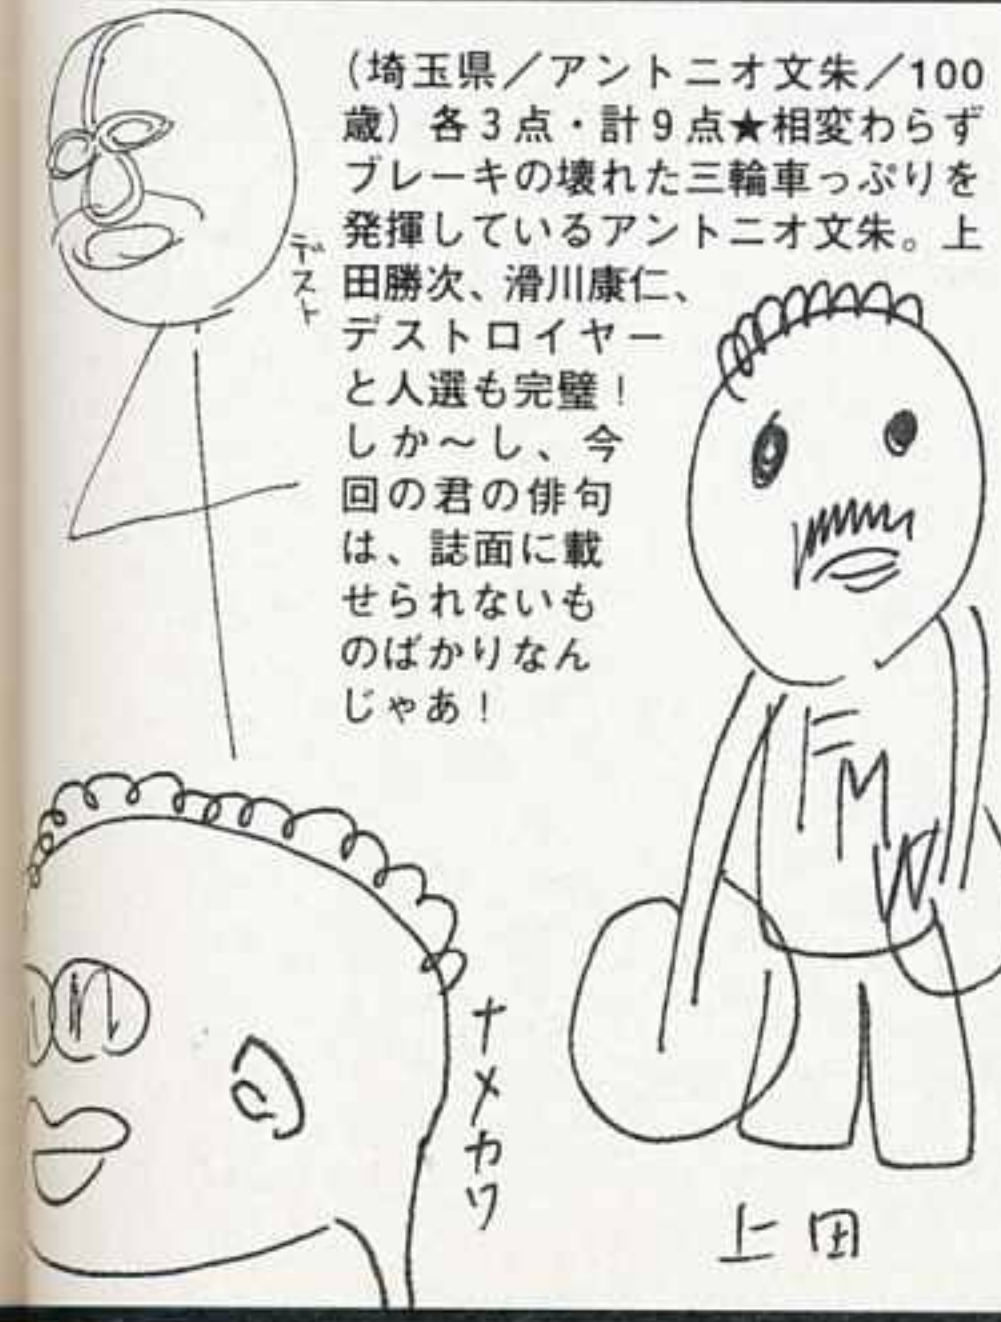 (埼玉県／アントニオ文朱／100
歳) 各3点・計9点★相変わらず
ブレーキの壊れた三輪車っぷりを
発揮しているアントニオ文朱。上
田勝次、滑川康仁、
デストロイヤー
と人選も完璧！
しか〜し、今
回の君の俳句
は、誌面に載
せられないも
のばかりなん
じゃあ！
デスト
FMW
ナメカワ
上田